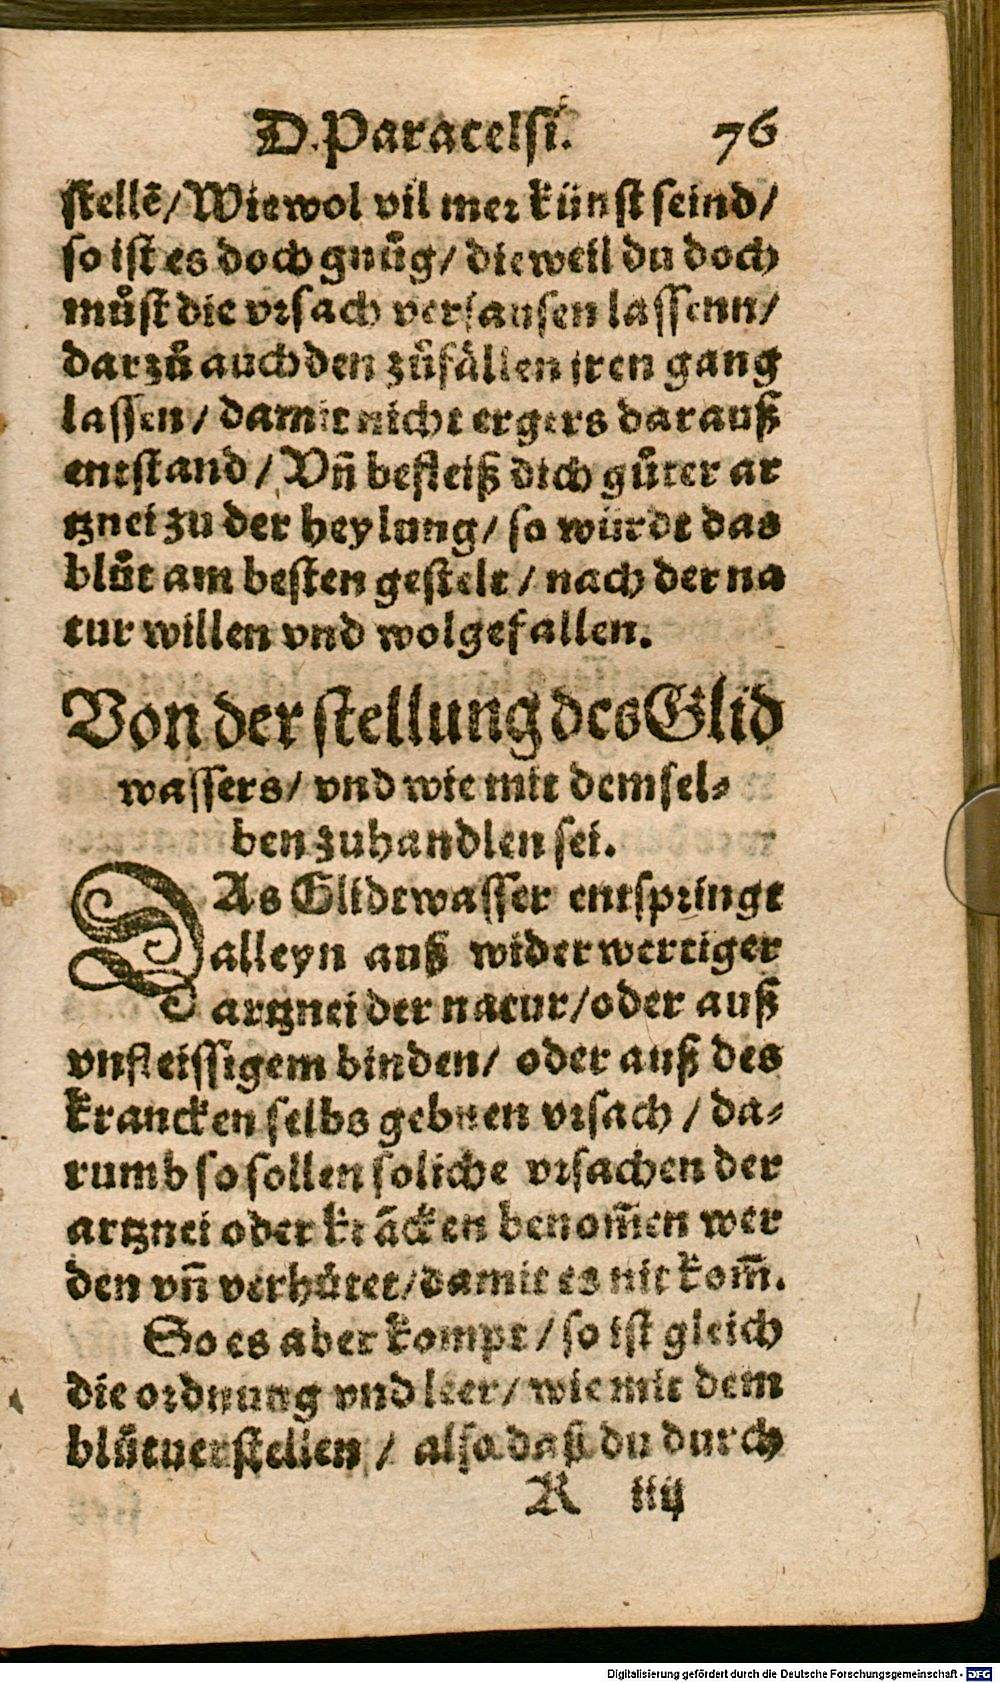 D. Paracelsi. 76
stellẽ/ Wiewol vil mer künst seind/
so ist es doch gnůg/ dieweil du doch
můst die vrsach versausen lassenn/
darzů auch den zůfällen iren gang
lassen/ damit nicht ergers darauß
entstand/ Vñ befleiß dich gůter ar
tznei zu der heylung/ so würdt das
blůt am besten gestelt/ nach der na
tur willen vnd wolgefallen.
Von der stellung des Glid
wassers/ vnd wie mit demsel⸗
ben zuhandlen sei.
DAs Glidtwasser entspringt
alleyn auß widerwertiger
artznei der natur/ oder auß
vnfleissigem binden/ oder auß des
krancken selbs gebnen vrsach/ da⸗
rumb so sollen soliche vrsachen der
artznei oder krãcken benom̃en wer
den vñ verhůtet/ damit es nit kom̃.
So es aber kompt/ so ist gleich
die ordnung vnd leer/ wie mit dem
blůtuerstellen/ also daß du durch
K iiij
Digitalisierung gefördert durch die Deutsche Forschungsgemeinschaft - DFG